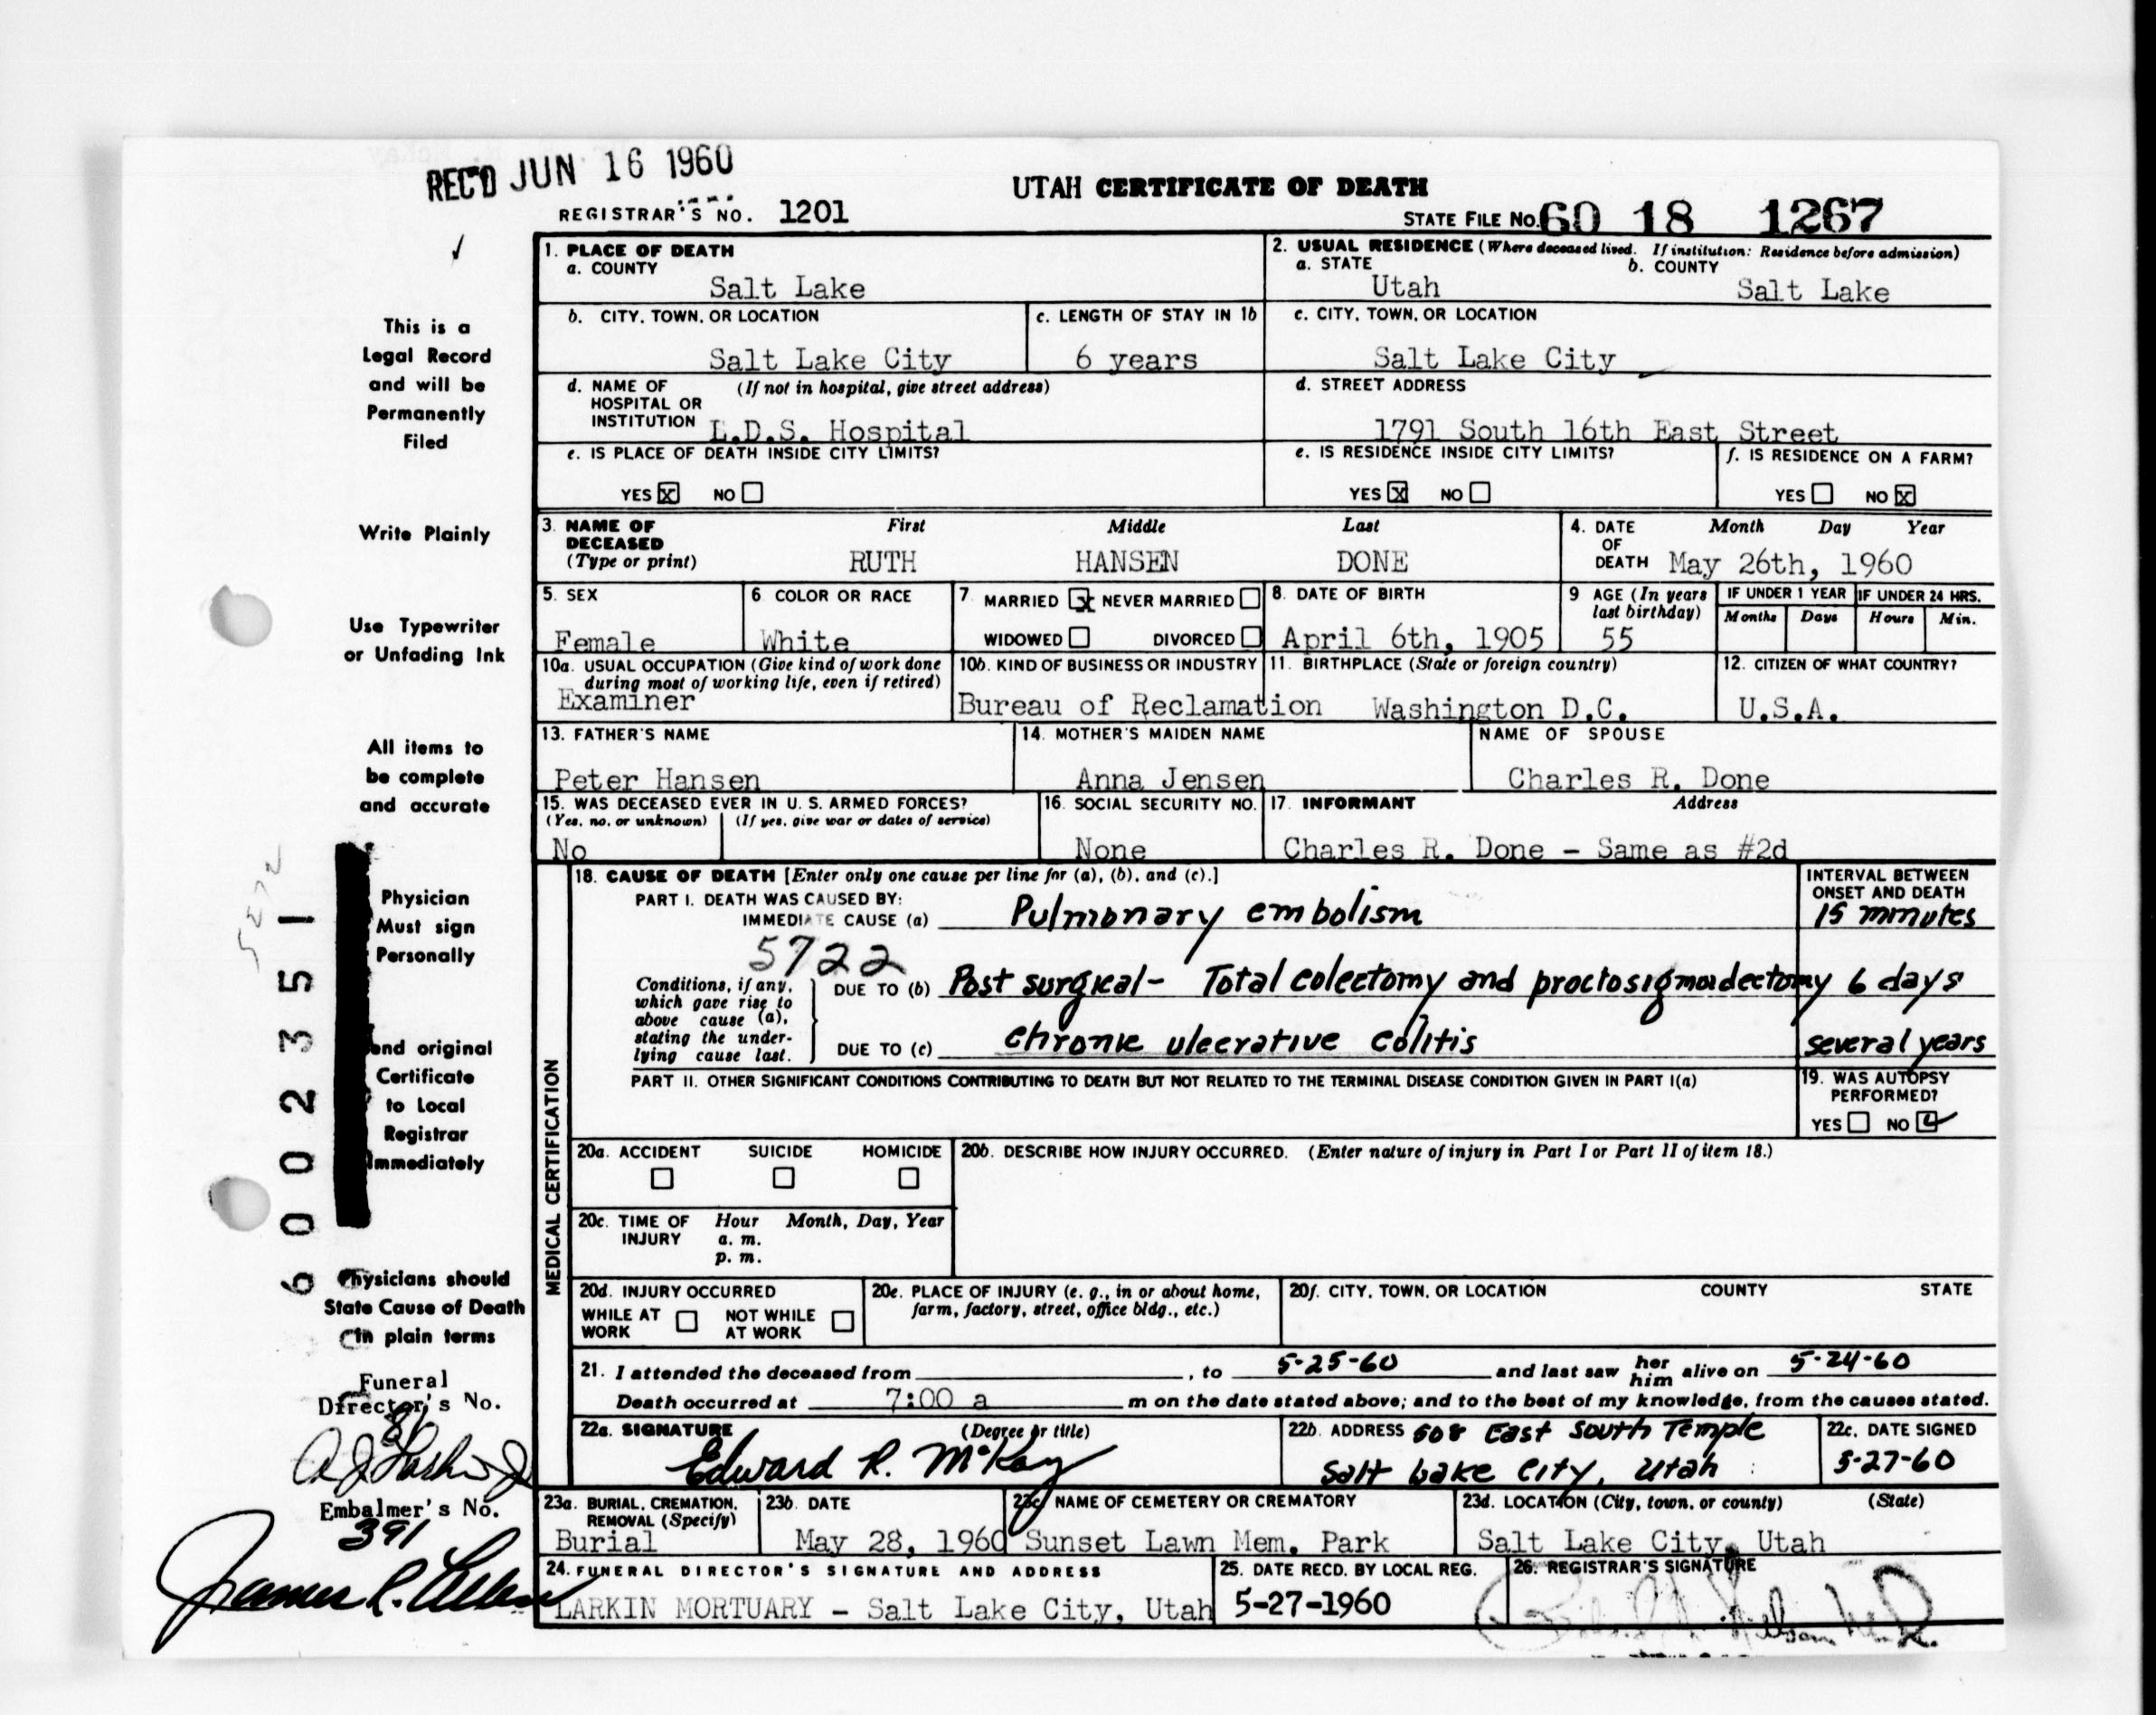 REC'D JUN 16 1960
UTAH CERTIFICATE OF DEATH
REGISTRAR'S NO. 1201
STATE FILE NO. 60 18 1267
This is a
Legal Record
and will be
Permanently
Filed
Write Plainly
Use Typewriter
or Unfading Ink
All items to
be complete
and accurate
Physician
Must sign
Personally
end original
Certificate
to Local
Registrar
Immediately
Physicians should
State Cause of Death
in plain terms
6002351
Funeral
Director's No.
Embalmer's No.
391
1. PLACE OF DEATH
a. COUNTY
Salt Lake
2. USUAL RESIDENCE (Where deceased lived. If institution: Residence before admission)
a. STATE b. COUNTY
Utah Salt Lake
b. CITY, TOWN, OR LOCATION c. LENGTH OF STAY IN 1b c. CITY, TOWN, OR LOCATION
Salt Lake City 6 years Salt Lake City
d. NAME OF (If not in hospital, give street address)
HOSPITAL OR
INSTITUTION L.D.S. Hospital
d. STREET ADDRESS
1791 South 16th East Street
e. IS PLACE OF DEATH INSIDE CITY LIMITS? e. IS RESIDENCE INSIDE CITY LIMITS? f. IS RESIDENCE ON A FARM?
YES X NO YES X NO YES NO X
3. NAME OF First Middle Last
DECEASED
(Type or print) RUTH HANSEN DONE
4. DATE Month Day Year
OF
DEATH May 26th, 1960
5. SEX
Female
6. COLOR OR RACE
White
7. MARRIED X NEVER MARRIED
WIDOWED DIVORCED
8. DATE OF BIRTH
April 6th, 1905
9 AGE (In years
last birthday)
55
IF UNDER 1 YEAR IF UNDER 24 HRS.
Months Days Hours Min.
10a. USUAL OCCUPATION (Give kind of work done
during most of working life, even if retired)
Examiner
10b. KIND OF BUSINESS OR INDUSTRY
Bureau of Reclamation
11. BIRTHPLACE (State or foreign country)
Washington D.C.
12. CITIZEN OF WHAT COUNTRY?
U.S.A.
13. FATHER'S NAME
Peter Hansen
14. MOTHER'S MAIDEN NAME
Anna Jensen
NAME OF SPOUSE
Charles R. Done
15. WAS DECEASED EVER IN U. S. ARMED FORCES?
(Yes, no, or unknown) (If yes, give war or dates of service)
No
16. SOCIAL SECURITY NO.
None
17. INFORMANT Address
Charles R. Done - Same as #2d
MEDICAL CERTIFICATION
18. CAUSE OF DEATH [Enter only one cause per line for (a), (b), and (c).]
INTERVAL BETWEEN
ONSET AND DEATH
PART I. DEATH WAS CAUSED BY:
IMMEDIATE CAUSE (a) Pulmonary embolism 15 minutes
5722
Conditions, if any,
which gave rise to
above cause (a),
stating the under-
lying cause last.
DUE TO (b) Post surgical- Total colectomy and proctosigmoidectomy 6 days
DUE TO (c) chronic ulcerative colitis several years
PART II. OTHER SIGNIFICANT CONDITIONS CONTRIBUTING TO DEATH BUT NOT RELATED TO THE TERMINAL DISEASE CONDITION GIVEN IN PART I(a)
19. WAS AUTOPSY
PERFORMED?
YES NO
20a. ACCIDENT SUICIDE HOMICIDE
20b. DESCRIBE HOW INJURY OCCURRED. (Enter nature of injury in Part I or Part II of item 18.)
20c. TIME OF Hour Month, Day, Year
INJURY a. m.
p. m.
20d. INJURY OCCURRED
WHILE AT NOT WHILE
WORK AT WORK
20e. PLACE OF INJURY (e. g., in or about home,
farm, factory, street, office bldg., etc.)
20f. CITY, TOWN, OR LOCATION COUNTY STATE
21. I attended the deceased from , to 5-25-60 and last saw her him alive on 5-24-60
Death occurred at 7:00 a m on the date stated above; and to the best of my knowledge, from the causes stated.
22a. SIGNATURE (Degree or title)
Edward R. McKay
22b. ADDRESS 508 East South Temple
Salt Lake City, Utah
22c. DATE SIGNED
5-27-60
23a. BURIAL, CREMATION,
REMOVAL (Specify)
Burial
23b. DATE
May 28, 1960
23c. NAME OF CEMETERY OR CREMATORY
Sunset Lawn Mem. Park
23d. LOCATION (City, town, or county) (State)
Salt Lake City, Utah
24. FUNERAL DIRECTOR'S SIGNATURE AND ADDRESS
LARKIN MORTUARY - Salt Lake City, Utah
25. DATE RECD. BY LOCAL REG.
5-27-1960
26. REGISTRAR'S SIGNATURE